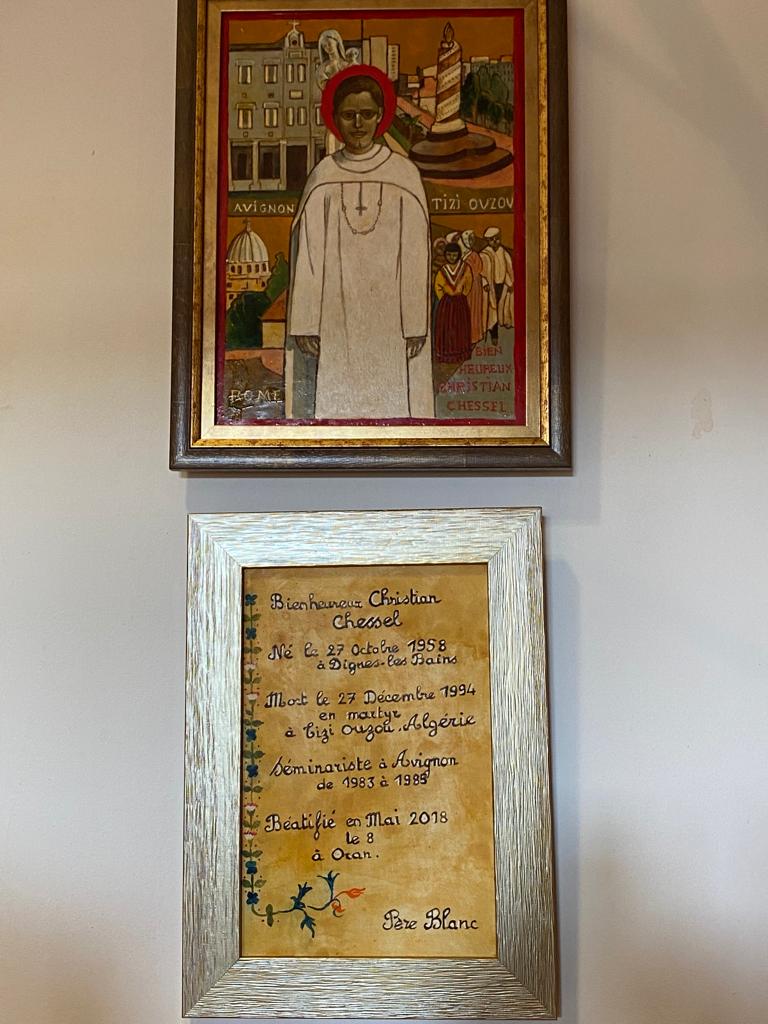 AVIGNON
TIZI OUZOU
ROME
BIEN
HEUREUX
CHRISTIAN
CHESSEL
Bienheureux Christian
Chessel
Né le 27 Octobre 1958
à Dignes-les Bains
Mort le 27 Décembre 1994
en martyr
à Tizi Ouzou. Algérie
Séminariste à Avignon
de 1983 à 1985
Béatifié en Mai 2018
le 8
à Oran.
Père Blanc